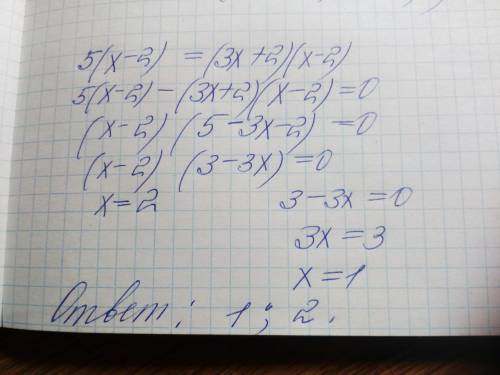 5(x-2) = (3x+2)(x-2)
5(x-2)-(3x+2)(x-2)=0
(x-2) (5-3x-2) =0
(x-2) (3-3x)=0
x=2 3-3x=0
3x=3
x=1
Ответ: 1; 2.